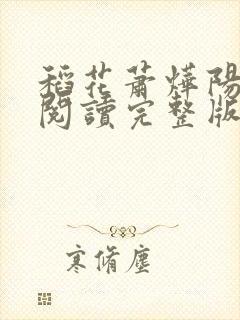 稻花蕭燁陽
閱讀完整版
寒脩塵